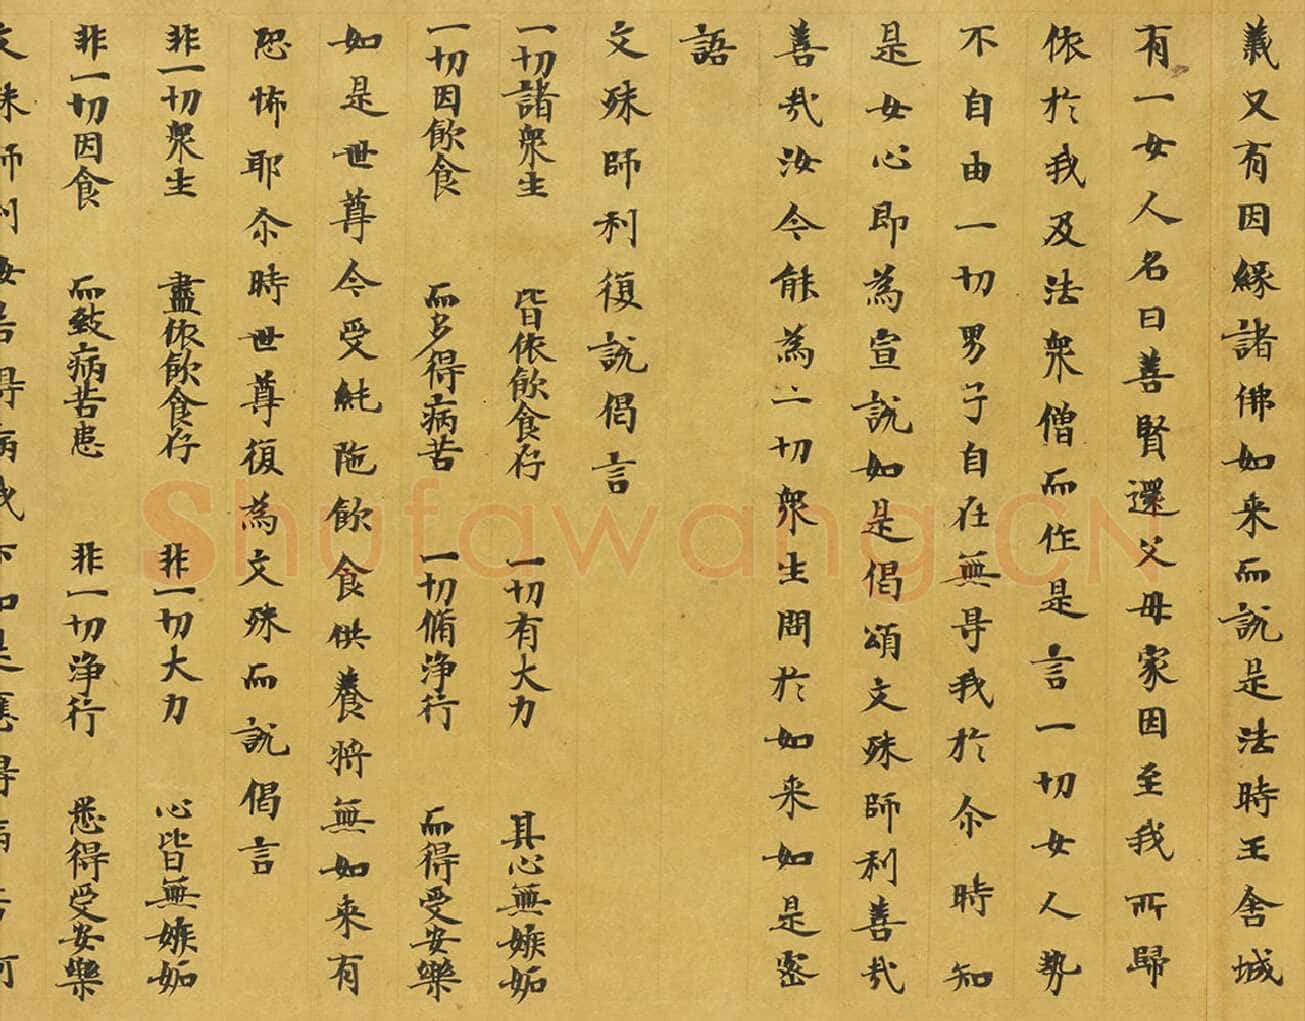 義又有因緣諸佛如来而說是法時王舍城
有一女人名曰善賢還父母家因至我所歸
依於我及法衆僧而作是言一切女人勢
不自由一切男子自在無㝵我於尒時知
是女心即為宣說如是偈頌文殊師利善㢤
善㢤汝今能為一切衆生問於如来如是密
語
文殊師利復說偈言
一切諸衆生 皆依飲食存 一切有大力 其心無嫉妬
一切因飲食 而多得病苦 一切脩淨行 而得受安樂
如是世尊今受純陁飲食供養將無如来有
恐怖耶尒時世尊復為文殊而說偈言
非一切衆生 盡依飲食存 非一切大力 心皆無嫉妬
非一切因食 而致病苦患 非一切淨行 悉得受安樂
文殊師利汝若得病我亦如是應得病苦何
Shufawang.CN